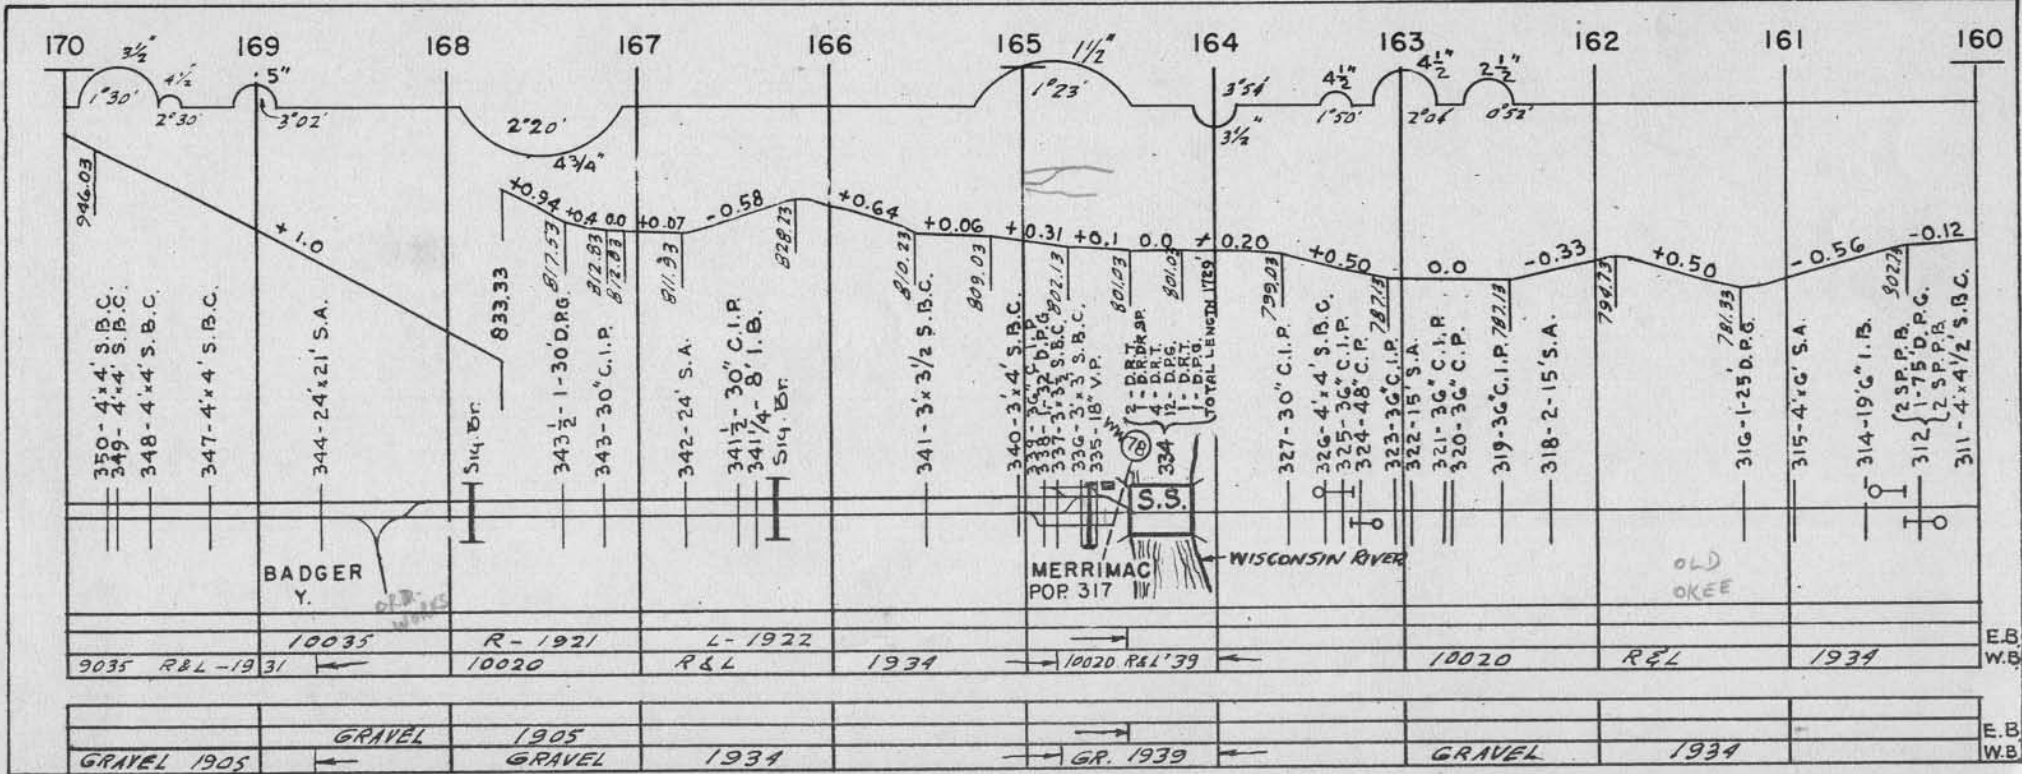 170 169 168 167 166 165 164 163 162 161 160
3½" 4½" 5" 1½" 4½" 4½" 2½"
1°30' 2°30' 3°02' 2°20' 1°23' 3°54' 1°50' 0°52'
4 3/4" 3½"
+1.0 +0.94 +0.4 0.0 +0.07 -0.58 +0.64 +0.06 +0.31 +0.1 0.0 +0.20 +0.50 0.0 -0.33 +0.50 -0.56 -0.12
946.03
833.33
817.53
812.83
812.83
811.33
828.23
810.23
809.03
802.13
801.03
801.03
799.03
787.13
787.13
781.33
350-4'x4' S.B.C.
349-4'x4' S.B.C.
348-4'x4' S.B.C.
347-4'x4' S.B.C.
344-24'x21' S.A.
Sig. Br.
343½-1-30' D.P.G.
343-30" C.I.P.
342-24' S.A.
341½-30" C.I.P.
341¼-8' I.B.
Sig. Br.
341-3'x3½ S.B.C.
340-3'x4' S.B.C.
339-36" C.I.P.
338-1-32' D.P.G.
336-3'x3' S.B.C.
335-18" V.P.
2-D.R.T.
1-D.R.DR.SP.
4-D.R.T.
12-D.P.G.
1-D.R.T.
1-D.P.G.
TOTAL LENGTH 1729'
78
334
S.S.
327-30" C.I.P.
326-4'x4' S.B.C.
325-36" C.I.P.
324-48" C.P.
323-36" C.I.P.
322-15' S.A.
321-36" C.I.P.
320-36" C.P.
319-36" C.I.P.
318-2-15' S.A.
316-1-25' D.P.G.
315-4'x6' S.A.
314-19'6" I.B.
312 2 SP. P.B.
1-75' D.P.G.
2 SP. P.B.
311-4'x4½' S.B.C.
BADGER
Y.
ORD.
WORKS
MERRIMAC
POP. 317
WISCONSIN RIVER
OLD
OKEE
10035 R-1921 L-1922 E.B.
9035 R&L-1931 10020 R&L 1934 10020 R&L '39 10020 R&L 1934 W.B.
GRAVEL 1905 E.B.
GRAVEL 1905 GRAVEL 1934 GR. 1939 GRAVEL 1934 W.B.